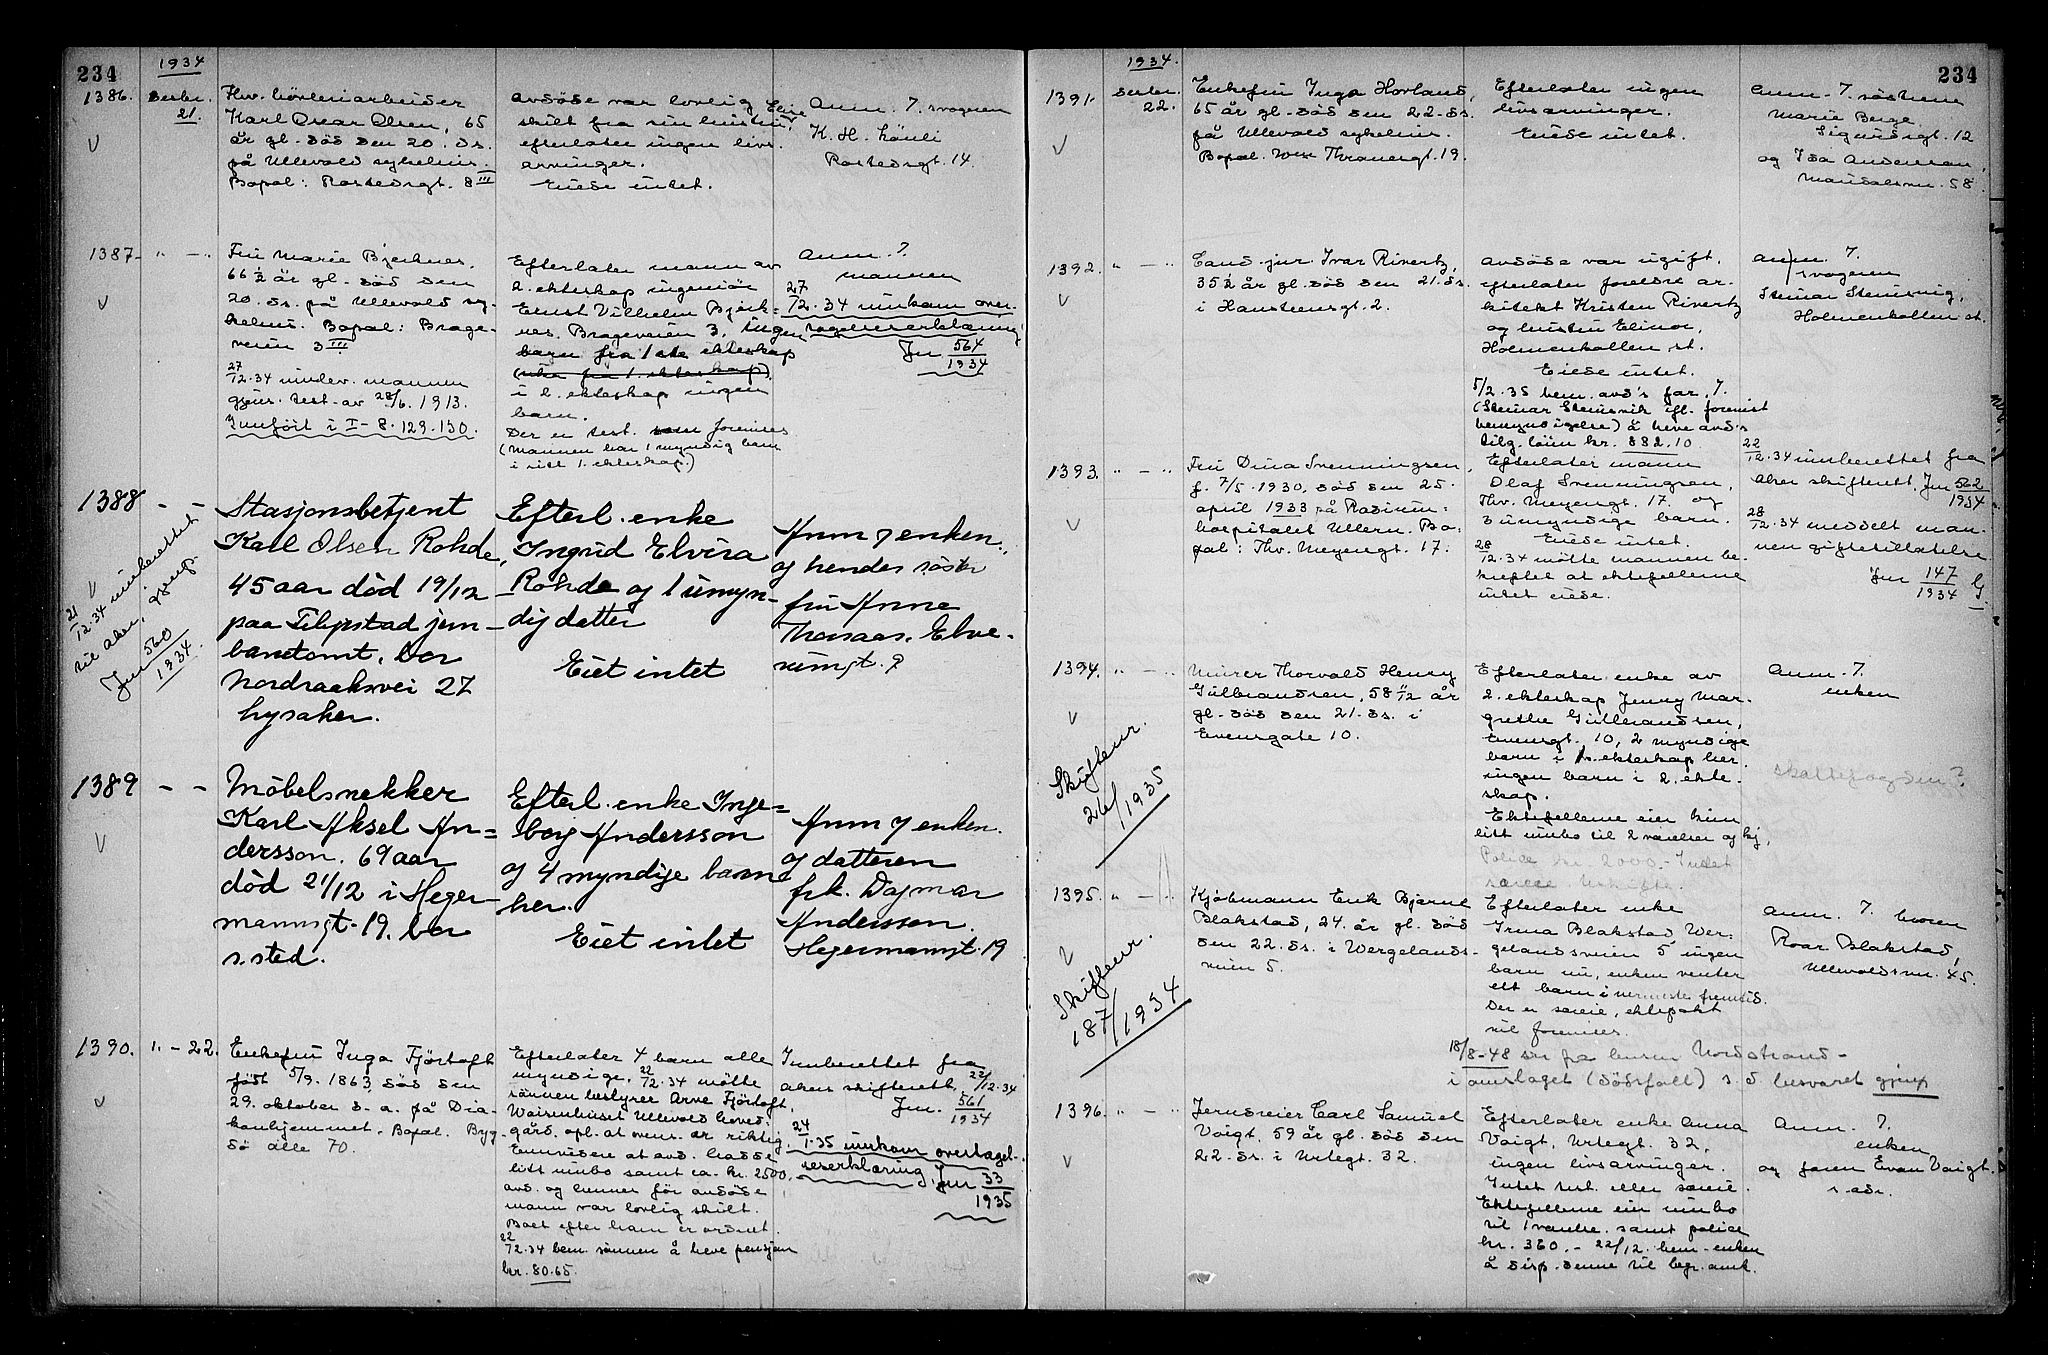 234
1934
1386. Desbr.
21.
Fhv. bövleriarbeider
Karl Oscar Olsen, 65
år gl. död den 20. ds.
på Ullevold sykehus.
Bopæl: Rostedsgt. 8 III
avdöde var lovlig
skilt fra sin hustru,
efterlater ingen livs-
arvinger.
Eiede intet.
Anm. 7. svogeren
K. H.
Rostedsgt. 14.
1387. " - "
Fru Marie Bjerknes,
66 1/2 år gl. död den
20. ds. på Ullevold sy-
kehus. Bopæl: Brage-
veien 3 III
27/12.34 underv. mannen
gjens. test. av 28/6. 1913.
Innfört i I - 8. 129. 130.
Efterlater mann av
2. ekteskap ingeniör
Ernst Vilhelm Bjerk-
nes, Brageveien 3, ingen
barn fra 1ste ekteskap
i 2. ekteskap ingen
barn.
Der er test. forevises
(mannen har 1 myndig barn
i sitt 1. ekteskap.)
Anm. 7.
mannen
27/12.34 innkom over-
tagelseserklæring
Jnr 564/1934
1388 - -
21/12.34 innberettet
til Aker, gjenp.
Jnr 560/1934.
Stasjonsbetjent
Karl Olsen Rohde,
45 aar död 19/12
paa Filipstad jern-
banetomt, bor
Nordraaksvei 27
Lysaker.
Efterl. enke
Ingrid Elvira
Rohde og 1 umyn-
dig datter
Eiet intet
Anm 7 enken,
og hendes söster
fru Anne
Thoraas, Elve-
rumgt. 9
1389 - -
Möbelsnekker
Karl Aksel An-
dersson. 69 aar
död 21/12 i Heger-
mannsgt. 19, bor
s. sted.
Efterl. enke Inge-
borg Andersson
og 4 myndige barn
her.
Eiet intet
Anm 7 enken.
og datteren
frk. Dagmar
Andersson.
Hegermannsgt. 19
1390. " - 22.
Enkefru Inga Fjörtoft
född 5/9. 1863, död den
29. oktober d. a. på Dia-
konhjemmet. Bopæl. Byg-
dö alle 70.
Efterlater 4 barn alle
myndige. 22/12.34 mötte
sönnen bestyrer Arne Fjörtoft,
Waisenhuset Ullevold hoved-
gård, opl. at overs. er riktig.
Ennvidere at avd. hadde
litt innbo samt ca. kr. 2500,
avd. og hennes för avdöde
mann var lovlig skilt.
Boet efter ham er ordnet.
22/12.34 bem. sönnen å heve pensjon
kr. 80.65.
Innberettet fra
Aker skifterett, 22/12.34
Jnr. 561/1934
24/1.35 innkom overtagel-
seserklæring Jnr 33/1935
234
1934.
1391. Desbr.
22.
Enkefru Inga Hovland,
65 år gl. död den 22. ds.
på Ullevold sykehus.
Bopæl. Thranesgt. 19.
Efterlater ingen
livsarvinger.
Eiede intet.
Anm. 7. söstrene
Marie Berge,
Sigurdsgt. 12
og Ida Andersen,
Maridalsvn. 58.
1392. " - "
Cand. jur. Ivar Rivertz,
35 1/2 år gl. död den 21. ds.
i Hansteensgt. 2.
Avdöde var ugift,
efterlater foreldre ar-
kitekt Kristen Rivertz
og hustru Elinor,
Holmenkollen st.
Eiede intet.
5/2. 35 bem. avd's far, 7.
(Steinar Stensvik ifl. forevist
bemyndigelse) å heve avd's
tilg. lönn kr. 882.10.
Anm. 7.
svogeren
Steinar Stensvig,
Holmenkollen st.
1393. " - "
Fru Dina Svenningsen,
f. 7/5. 1930, död den 25.
april 1933 på Radium-
hospitalet Ullern. Bo-
pæl: Thv. Meyersgt. 17.
Efterlater mann
Olaf Svenningsen,
Thv. Meyersgt. 17. og
3 umyndige barn.
Eiede intet.
28/12.34 mötte mannen be-
kreftet at ektefellene
intet eiede.
22/12.34 innberettet fra
Aker skifterett, Jnr 562/1934
28/12.34 meddelt man-
nen giftetillatelse
Jnr 147/1934 G
1394. " - "
Skifteur.
26/1935
Murer Thorvald Henry
Gulbrandsen, 58 11/12 år
gl. död den 21. ds. i
Evensgate 10.
Efterlater enke av
2. ekteskap Jenny Mar-
grethe Gulbrandsen,
Evensgt. 10, 2 myndige
barn i 1. ekteskap her,
ingen barn i 2. ekte-
skap.
Ektefellene eier kun
litt innbo til 2 værelser og kj,
Police kr 2000.- Intet
særeie. Uskifte.
Anm. 7.
enken
1395. " - "
Skifteur.
187/1934
Kjöbmann Erik Bjarne
Blakstad, 24. år gl. död
den 22. ds. i Wergelands-
veien 5.
Efterlater enke
Irma Blakstad Wer-
gelandsveien 5 ingen
barn nu, enken venter
ett barn i nærmeste fremtid.
Der er særeie, ektepakt
vil forevises.
18/8-48 Nordstrand -
i omslaget (dödsfall) s. d. besvaret gjenp
Anm. 7. broren
Roar Blakstad,
Ullevoldsvn. 45.
1396. " - "
Jerndreier Carl Samuel
Voigt, 59 år gl. död den
22. ds. i Urtegt. 32.
Efterlater enke Anna
Voigt, Urtegt. 32,
ingen livsarvinger.
Intet test. eller særeie.
Ektefellene eier innbo
til 1 værelse samt police
kr. 360.- 22/12. bem. enken
å disp. denne til begr. omk.
Anm. 7.
enken
og faren Evan Voigt.
s. adr.